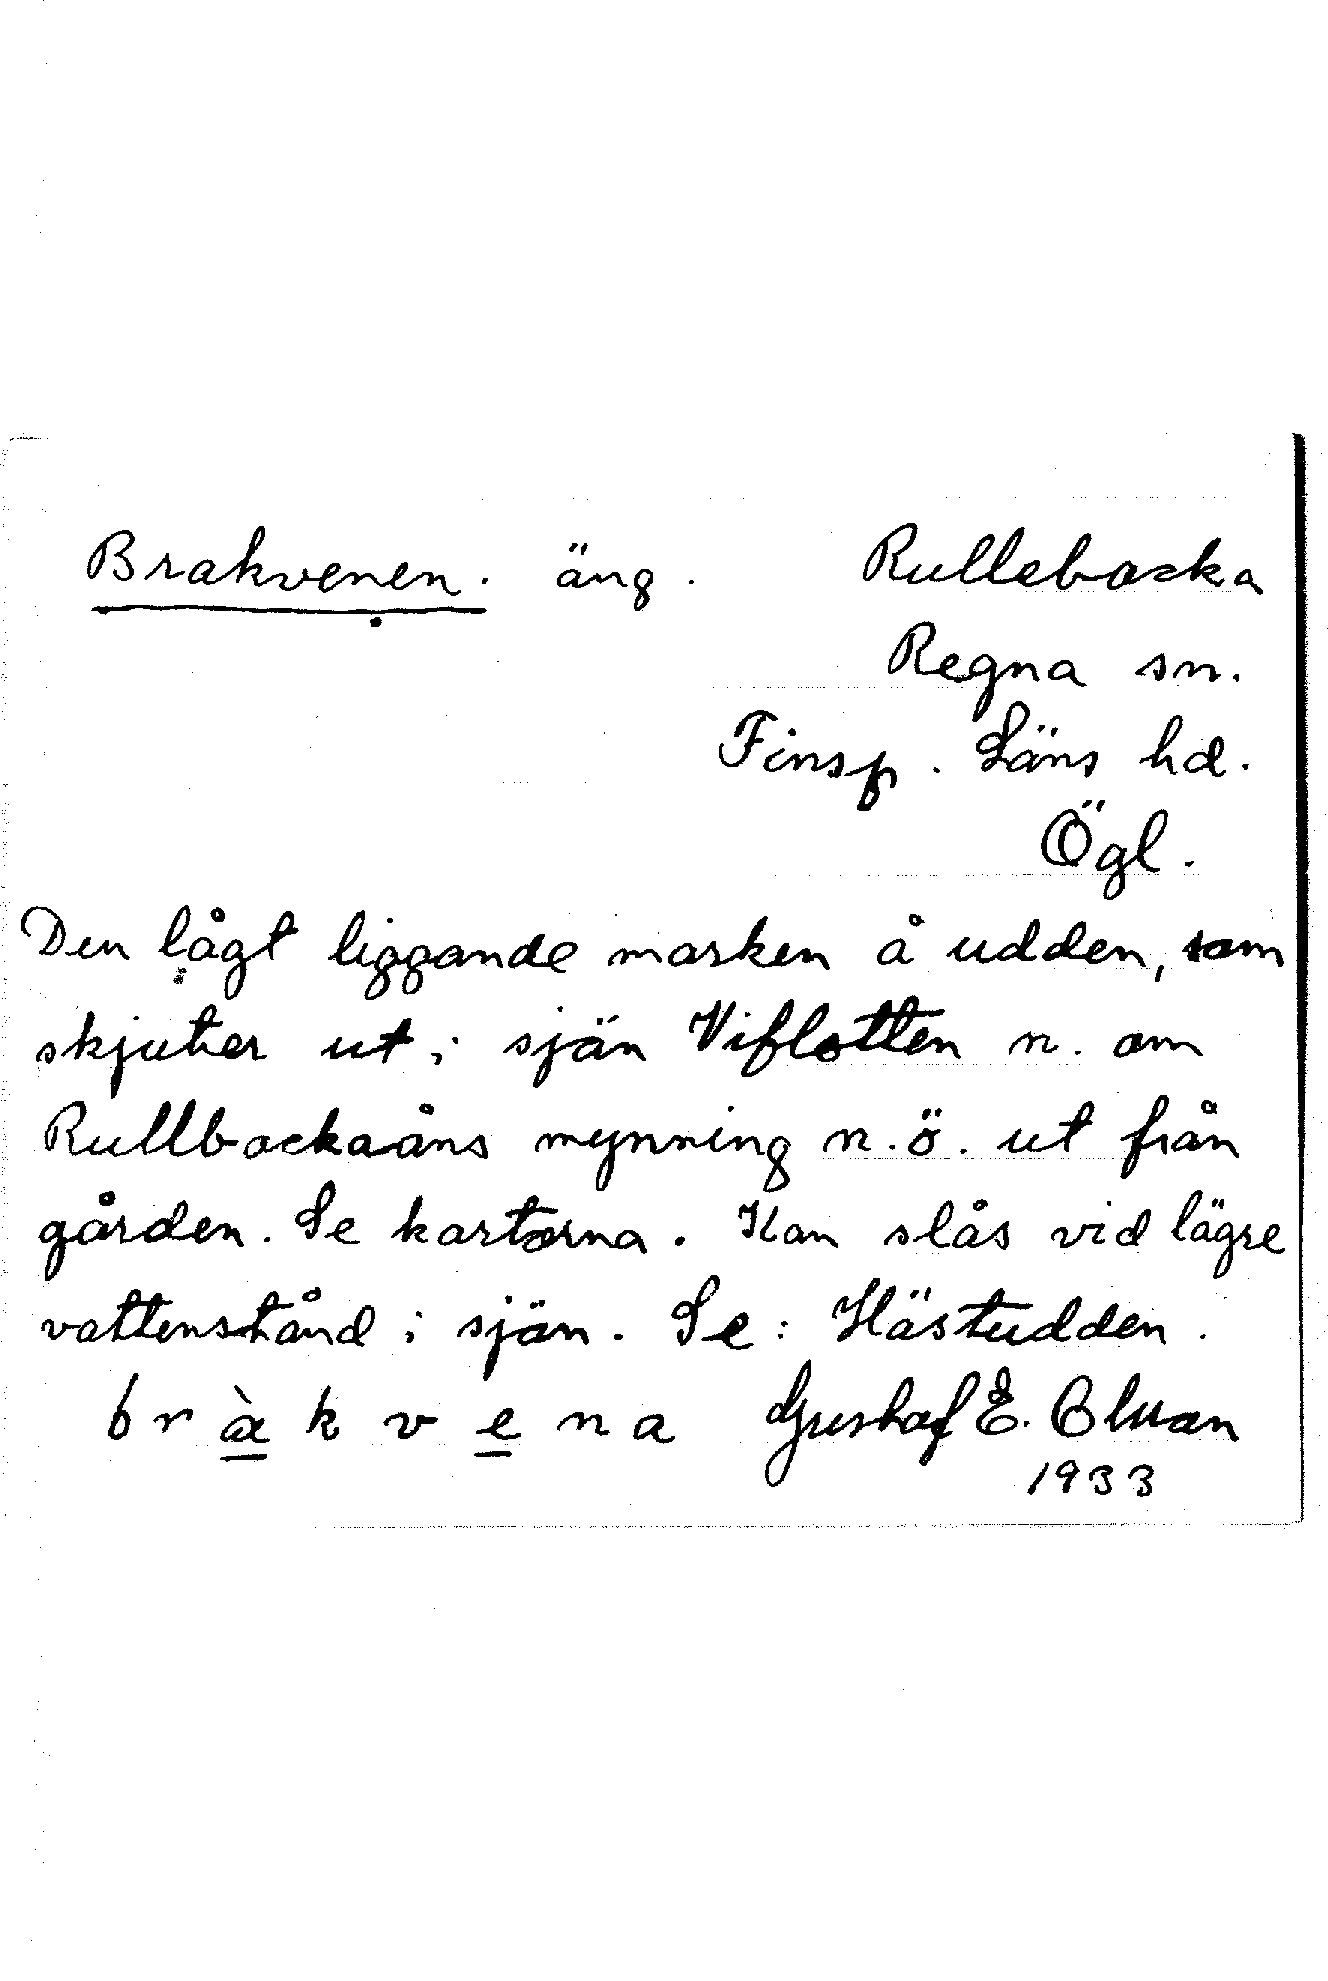 Brakvenen. äng. Rullebacka
Regna sn.
Finsp. Läns hd.
Ögl.
Den lågt liggande marken å udden, som
skjuter ut i sjön Viflotten n. om
Rullbackaåns mynning n.ö. ut från
gården. Se kartorna. Kan slås vid lägre
vattenstånd i sjön. Se: Hästudden.
b r à k v e n a Gustaf E.
1933